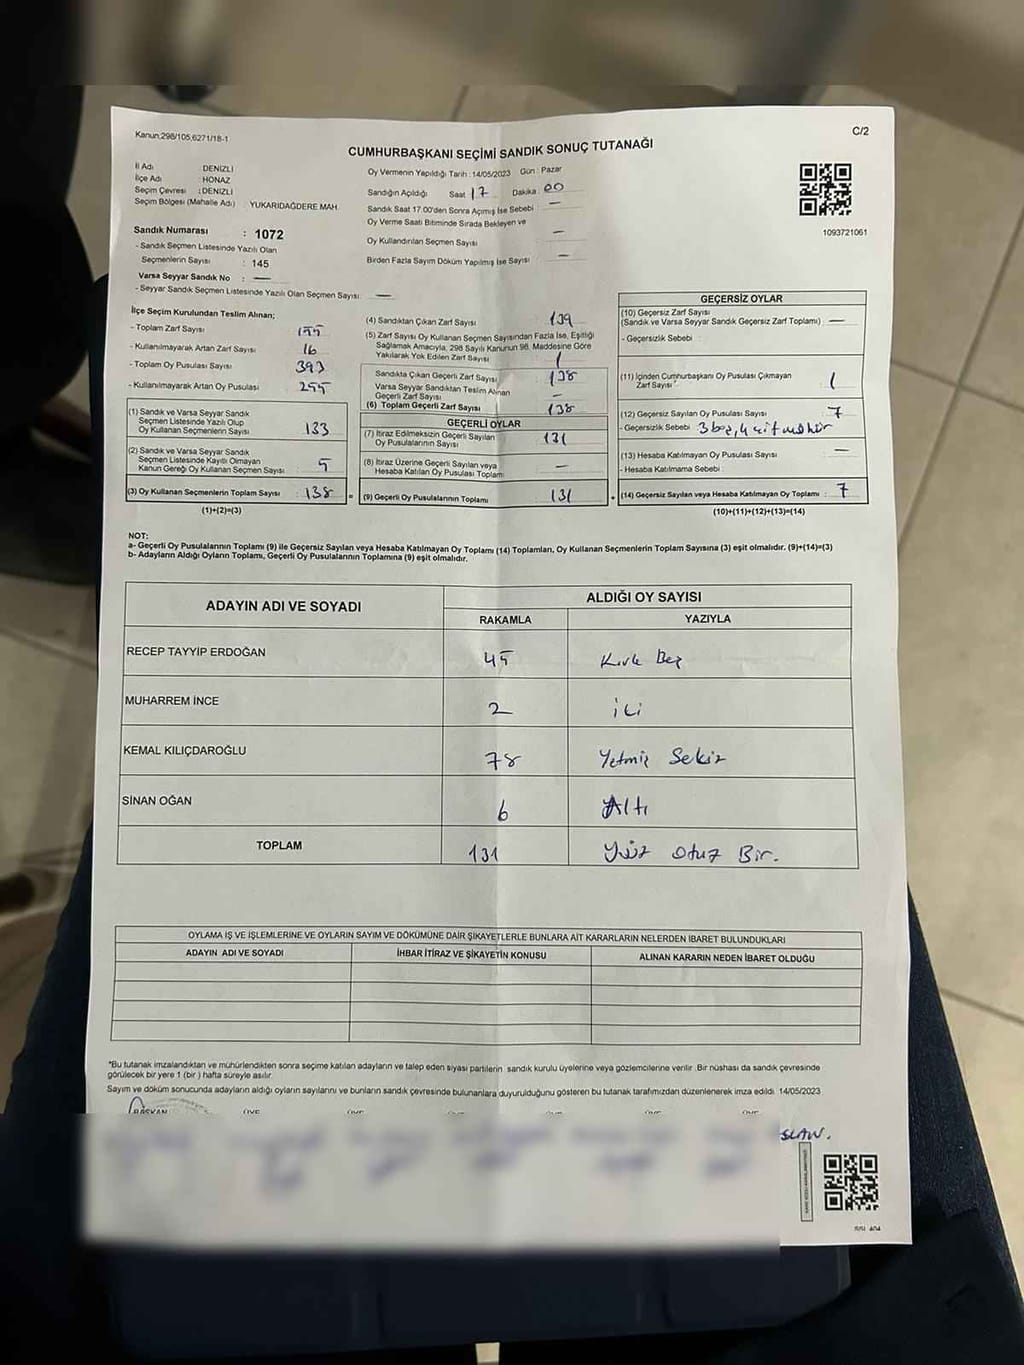 Kanun:298/105,6271/18-1
C/2
CUMHURBAŞKANI SEÇİMİ SANDIK SONUÇ TUTANAĞI
İl Adı DENİZLİ
İlçe Adı : HONAZ
Seçim Çevresi : DENİZLİ
Seçim Bölgesi (Mahalle Adı) : YUKARIDAĞDERE MAH.
Sandık Numarası : 1072
- Sandık Seçmen Listesinde Yazılı Olan
Seçmenlerin Sayısı : 145
Varsa Seyyar Sandık No : —
- Seyyar Sandık Seçmen Listesinde Yazılı Olan Seçmen Sayısı: —
Oy Vermenin Yapıldığı Tarih : 14/05/2023 Gün : Pazar
Sandığın Açıldığı Saat 17 Dakika 00
Sandık Saat 17.00'den Sonra Açımış İse Sebebi : —
Oy Verme Saati Bitiminde Sırada Bekleyen ve
Oy Kullandırılan Seçmen Sayısı —
Birden Fazla Sayım Döküm Yapılmış İse Sayısı —
1093721061
İlçe Seçim Kurulundan Teslim Alınan;
- Toplam Zarf Sayısı
- Kullanılmayarak Artan Zarf Sayısı 16
- Toplam Oy Pusulası Sayısı 393
- Kullanılmayarak Artan Oy Pusulası 255
(1) Sandık ve Varsa Seyyar Sandık
Seçmen Listesinde Yazılı Olup
Oy Kullanan Seçmenlerin Sayısı 133
(2) Sandık ve Varsa Seyyar Sandık
Seçmen Listesinde Kayıtlı Olmayan
Kanun Gereği Oy Kullanan Seçmen Sayısı : 5
(3) Oy Kullanan Seçmenlerin Toplam Sayısı : 138
(1)+(2)=(3)
(4) Sandıktan Çıkan Zarf Sayısı 139
(5) Zarf Sayısı Oy Kullanan Seçmen Sayısından Fazla İse, Eşitliği
Sağlamak Amacıyla, 298 Sayılı Kanunun 98. Maddesine Göre
Yakılarak Yok Edilen Zarf Sayısı 1
Sandıkta Çıkan Geçerli Zarf Sayısı : 138
Varsa Seyyar Sandıktan Teslim Alınan
Geçerli Zarf Sayısı —
(6) Toplam Geçerli Zarf Sayısı 138
GEÇERLİ OYLAR
(7) İtiraz Edilmeksizin Geçerli Sayılan
Oy Pusulalarının Sayısı 131
(8) İtiraz Üzerine Geçerli Sayılan veya
Hesaba Katılan Oy Pusulası Toplamı —
= (9) Geçerli Oy Pusulalarının Toplamı 131
GEÇERSİZ OYLAR
(10) Geçersiz Zarf Sayısı
(Sandık ve Varsa Seyyar Sandık Geçersiz Zarf Toplamı) —
- Geçersizlik Sebebi :
(11) İçinden Cumhurbaşkanı Oy Pusulası Çıkmayan
Zarf Sayısı 1
(12) Geçersiz Sayılan Oy Pusulası Sayısı : 7
- Geçersizlik Sebebi 3 boş, 4 çift mühür
(13) Hesaba Katılmayan Oy Pusulası Sayısı —
- Hesaba Katılmama Sebebi :
+ (14) Geçersiz Sayılan veya Hesaba Katılmayan Oy Toplamı : 7
(10)+(11)+(12)+(13)=(14)
NOT:
a- Geçerli Oy Pusulalarının Toplamı (9) ile Geçersiz Sayılan veya Hesaba Katılmayan Oy Toplamı (14) Toplamları, Oy Kullanan Seçmenlerin Toplam Sayısına (3) eşit olmalıdır. (9)+(14)=(3)
b- Adayların Aldığı Oyların Toplamı, Geçerli Oy Pusulalarının Toplamına (9) eşit olmalıdır.
ADAYIN ADI VE SOYADI ALDIĞI OY SAYISI
RAKAMLA YAZIYLA
RECEP TAYYİP ERDOĞAN 45 Kırk Beş
MUHARREM İNCE 2 iki
KEMAL KILIÇDAROĞLU 78 Yetmiş Sekiz
SİNAN OĞAN 6 Altı
TOPLAM 131 Yüz Otuz Bir.
OYLAMA İŞ VE İŞLEMLERİNE VE OYLARIN SAYIM VE DÖKÜMÜNE DAİR ŞİKAYETLERLE BUNLARA AİT KARARLARIN NELERDEN İBARET BULUNDUKLARI
ADAYIN ADI VE SOYADI İHBAR İTİRAZ VE ŞİKAYETİN KONUSU ALINAN KARARIN NEDEN İBARET OLDUĞU
*Bu tutanak imzalandıktan ve mühürlendikten sonra seçime katılan adayların ve talep eden siyasi partilerin sandık kurulu üyelerine veya gözlemcilerine verilir. Bir nüshası da sandık çevresinde
görülecek bir yere 1 (bir ) hafta süreyle asılır.
Sayım ve döküm sonucunda adayların aldığı oyların sayılarını ve bunların sandık çevresinde bulunanlara duyurulduğunu gösteren bu tutanak tarafımızdan düzenlenerek imza edildi. 14/05/2023
BAŞKAN ÜYE ÜYE ÜYE ÜYE ÜYE